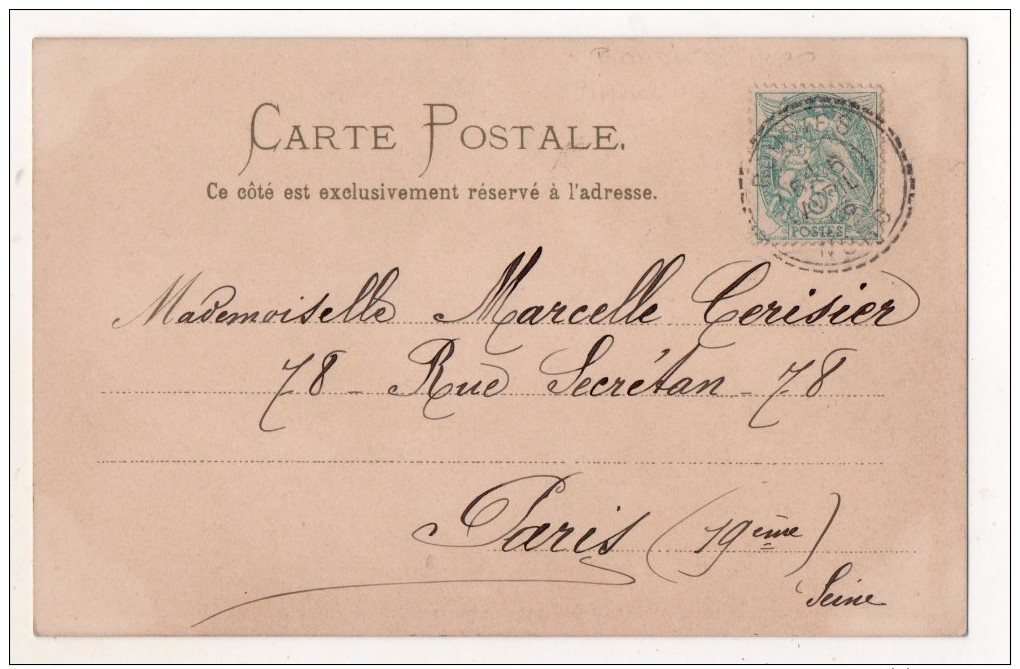 CARTE POSTALE.
Ce côté est exclusivement réservé à l'adresse.
5
POSTES
Mademoiselle Marcelle Cerisier
78 - Rue Secrétan - 78
Paris (19ème)
Seine